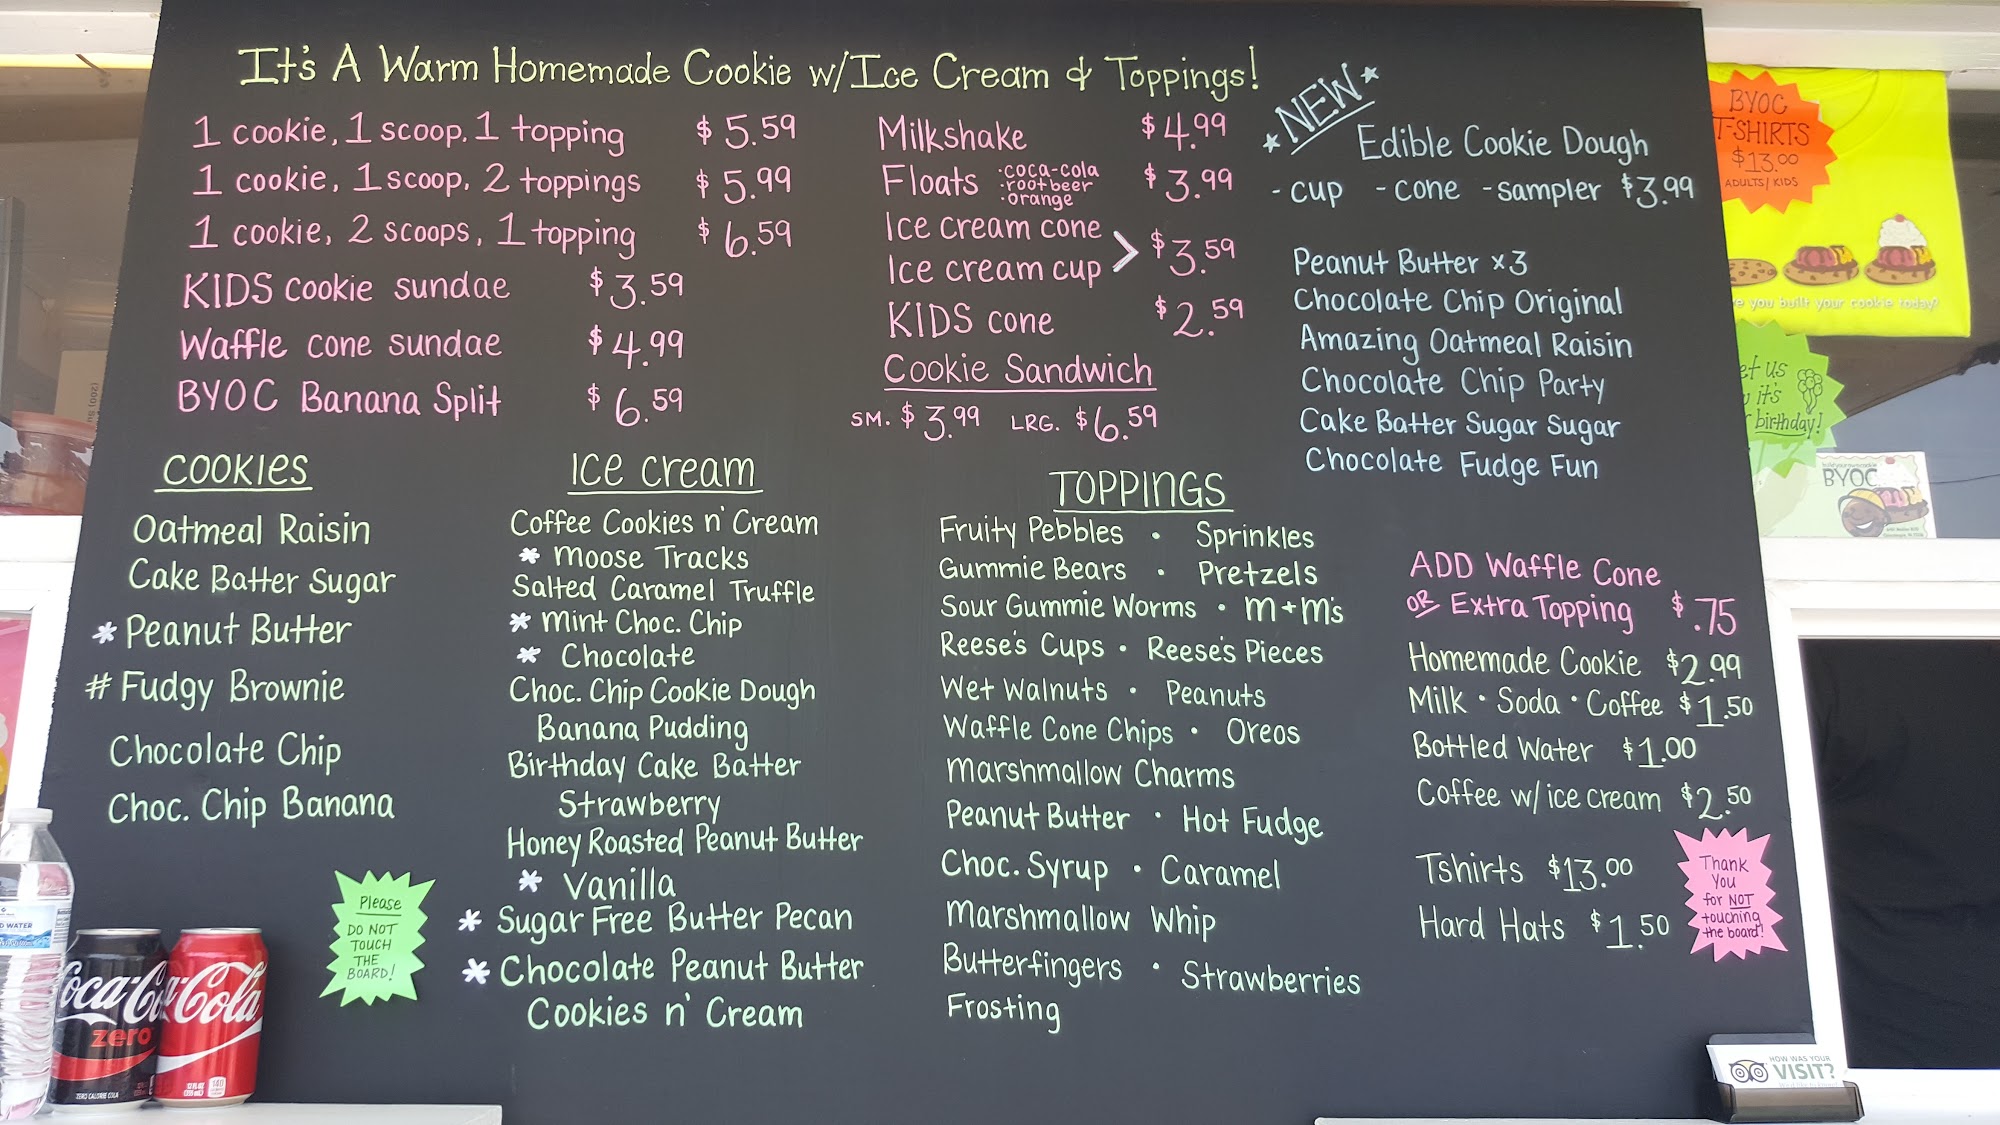 It's A Warm Homemade Cookie w/Ice Cream & Toppings!
1 cookie, 1 scoop, 1 topping $5.59
1 cookie, 1 scoop, 2 toppings $5.99
1 cookie, 2 scoops, 1 topping $6.59
KIDS cookie sundae $3.59
Waffle cone sundae $4.99
BYOC Banana Split $6.59
Milkshake $4.99
Floats $3.99
·coca-cola
·rootbeer
·orange
Ice cream cone
Ice cream cup > $3.59
KIDS cone $2.59
Cookie Sandwich
SM. $3.99 LRG. $6.59
*NEW*
Edible Cookie Dough
-cup -cone -sampler $3.99
Peanut Butter x3
Chocolate Chip Original
Amazing Oatmeal Raisin
Chocolate Chip Party
Cake Batter Sugar Sugar
Chocolate Fudge Fun
COOKIES
Oatmeal Raisin
Cake Batter Sugar
* Peanut Butter
# Fudgy Brownie
Chocolate Chip
Choc. Chip Banana
ICE Cream
Coffee Cookies n' Cream
* Moose Tracks
Salted Caramel Truffle
* Mint Choc. Chip
* Chocolate
Choc. Chip Cookie Dough
Banana Pudding
Birthday Cake Batter
Strawberry
Honey Roasted Peanut Butter
* Vanilla
* Sugar Free Butter Pecan
* Chocolate Peanut Butter
Cookies n' Cream
TOPPINGS
Fruity Pebbles · Sprinkles
Gummie Bears · Pretzels
Sour Gummie Worms · m+m's
Reese's Cups · Reese's Pieces
Wet Walnuts · Peanuts
Waffle Cone Chips · Oreos
Marshmallow Charms
Peanut Butter · Hot Fudge
Choc. Syrup · Caramel
Marshmallow Whip
Butterfingers · Strawberries
Frosting
ADD Waffle Cone
OR Extra Topping $.75
Homemade Cookie $2.99
Milk · Soda · Coffee $1.50
Bottled Water $1.00
Coffee w/ice cream $2.50
Tshirts $13.00
Hard Hats $1.50
Please
DO NOT
TOUCH
THE
BOARD!
Thank
You
for NOT
touching
the board!
BYOC
T-SHIRTS
$13.00
ADULTS/KIDS
you built your cookie today?
us
it's
birthday!
BYOC
WATER
Coca-Cola
zero
ZERO CALORIE COLA
Coca-Cola
140
HOW WAS YOUR
VISIT?